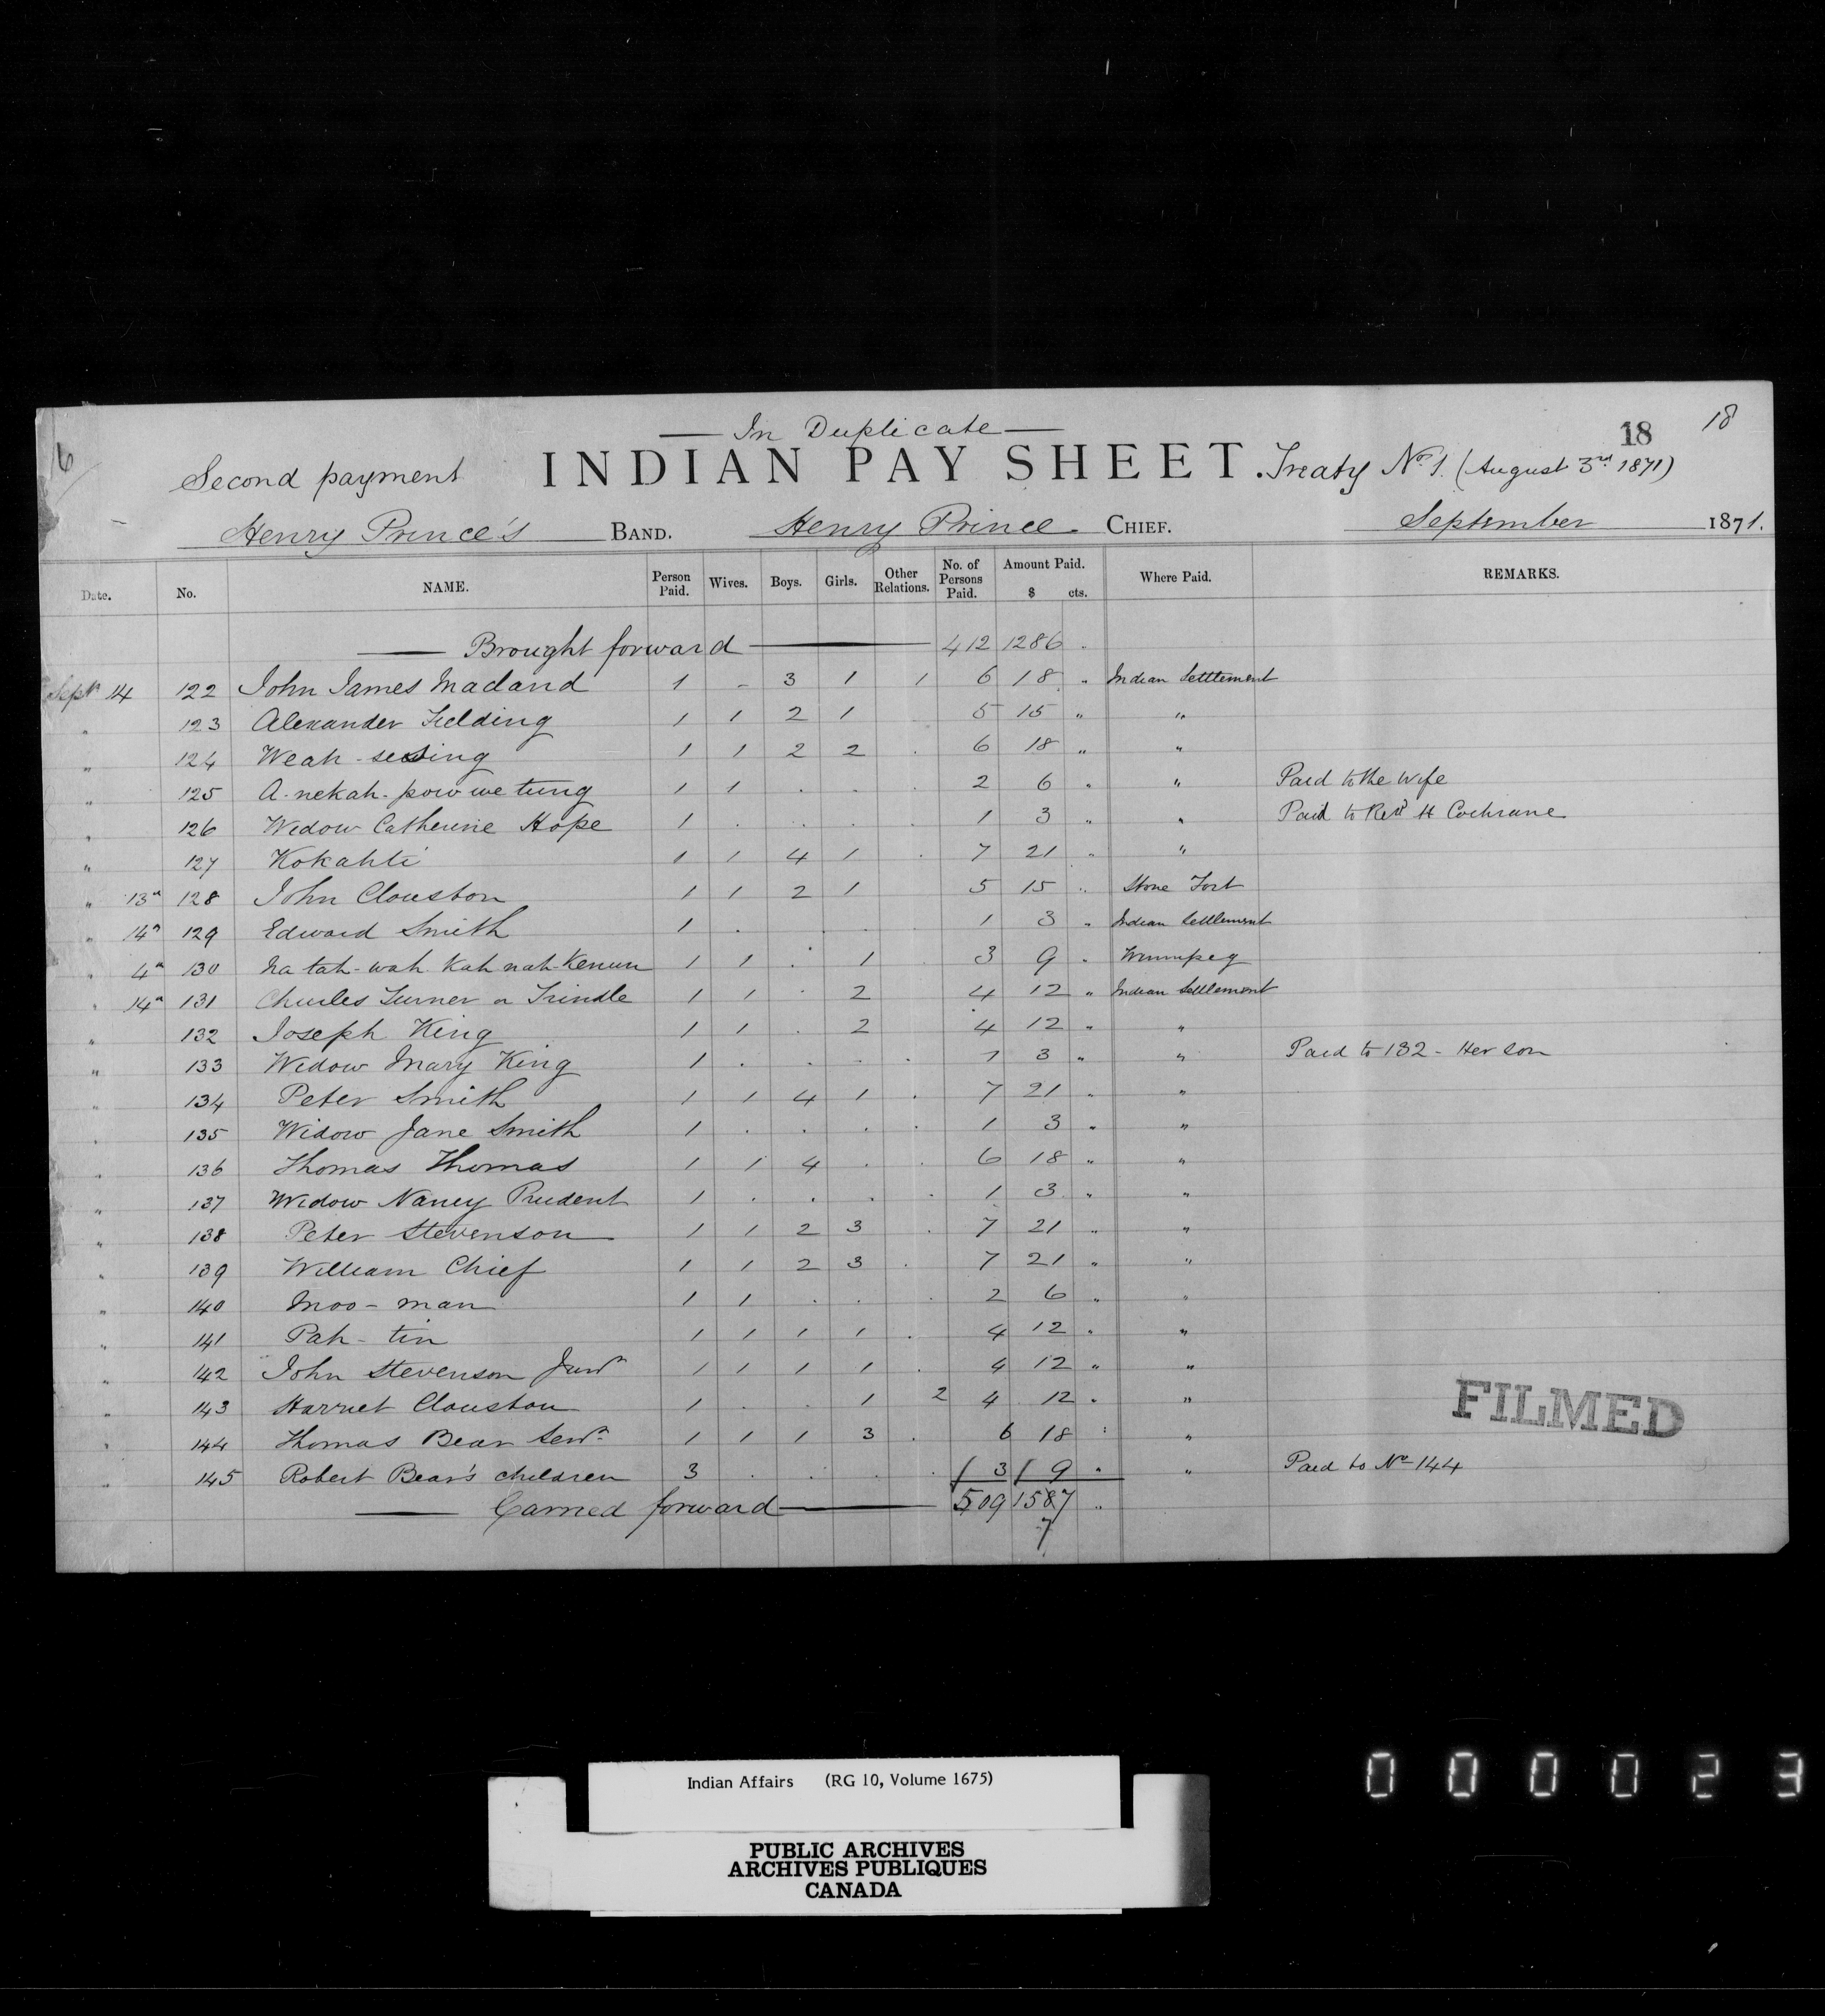 In Duplicate
18
18
6
Second payment INDIAN PAY SHEET. Treaty No 1. (August 3rd 1871)
Henry Prince's BAND. Henry Prince CHIEF. September 1871.
Date. No. NAME. Person Paid. Wives. Boys. Girls. Other Relations. No. of Persons Paid. Amount Paid. $ cts. Where Paid. REMARKS.
Brought forward 412 1286 .
Sept 14 122 John James Macland 1 - 3 1 1 6 18 " Indian Settlement
" 123 Alexander Fielding 1 1 2 1 5 15 " "
" 124 Weah-sessing 1 1 2 2 . 6 18 " "
" 125 A-nekah-pow we tung 1 1 . . . 2 6 " " Paid to the Wife
" 126 Widow Catherine Hope 1 . . . . 1 3 " " Paid to Revd H Cochrane
" 127 Kokahte 1 1 4 1 . 7 21 " "
" 13" 128 John Clouston 1 1 2 1 5 15 " Stone Fort
" 14" 129 Edward Smith 1 . . . . 1 3 " Indian Settlement
" 4" 130 Na tah-wah Kah nah-Kenun 1 1 . 1 . 3 9 " Winnipeg
" 14" 131 Charles Turner or Trindle 1 1 . 2 4 12 " Indian Settlement
" 132 Joseph King 1 1 . 2 4 12 " "
" 133 Widow Mary King 1 . . . . 1 3 " " Paid to 132 - Her son
" 134 Peter Smith 1 1 4 1 . 7 21 " "
" 135 Widow Jane Smith 1 . . . . 1 3 " "
" 136 Thomas Thomas 1 1 4 . . 6 18 " "
" 137 Widow Nancy Prudent 1 . . . . 1 3 " "
" 138 Peter Stevenson 1 1 2 3 . 7 21 " "
" 139 William Chief 1 1 2 3 . 7 21 " "
" 140 Moo-man 1 1 . . . 2 6 " "
" 141 Pah-tin 1 1 1 1 . 4 12 " "
" 142 John Stevenson Junr 1 1 1 1 . 4 12 " "
" 143 Harriet Clouston 1 . . 1 2 4 12 " "
" 144 Thomas Bear Senr 1 1 1 3 . 6 18 " "
" 145 Robert Bear's children 3 . . . . 3 9 " " Paid to No 144
Carried forward 509 1587 "
7
FILMED
Indian Affairs (RG 10, Volume 1675)
PUBLIC ARCHIVES
ARCHIVES PUBLIQUES
CANADA
000023